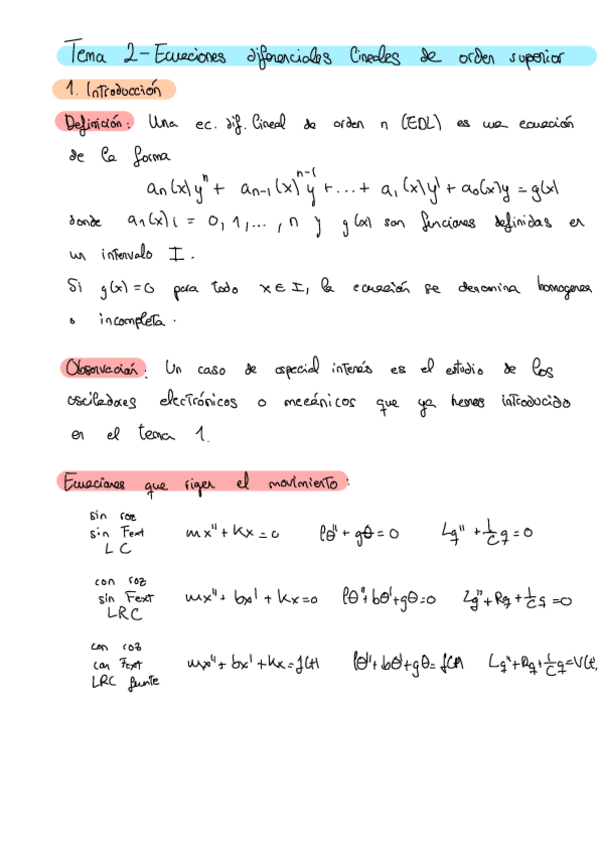 Tema 2 - Ecuaciones diferenciales lineales de orden superior
1. Introducción
Definición: Una ec. dif. lineal de orden n (EDL) es una ecuación
de la forma
aₙ(x)yⁿ + aₙ₋₁(x)yⁿ⁻¹ + ... + a₁(x)y' + a₀(x)y = g(x)
donde a₁(x) i = 0, 1, ..., n y g(x) son funciones definidas en
un intervalo I.
Si g(x) = 0 para todo x ∈ I, la ecuación se denomina homogenea
o incompleta.
Observación: Un caso de especial interés es el estudio de los
osciladores electrónicos o mecánicos que ya hemos introducido
en el tema 1.
Ecuaciones que rigen el movimiento:
sin roz
sin Fext mx'' + Kx = 0 lθ'' + gθ = 0 Lq'' + 1/C q = 0
LC
con roz
sin Fext mx'' + bx' + Kx = 0 lθ'' + bθ' + gθ = 0 Lq'' + Rq + 1/C q = 0
LRC
con roz
con Fext mx'' + bx' + Kx = f(t) lθ'' + bθ' + gθ = f(t) Lq'' + Rq + 1/C q = V(t)
LRC fuente